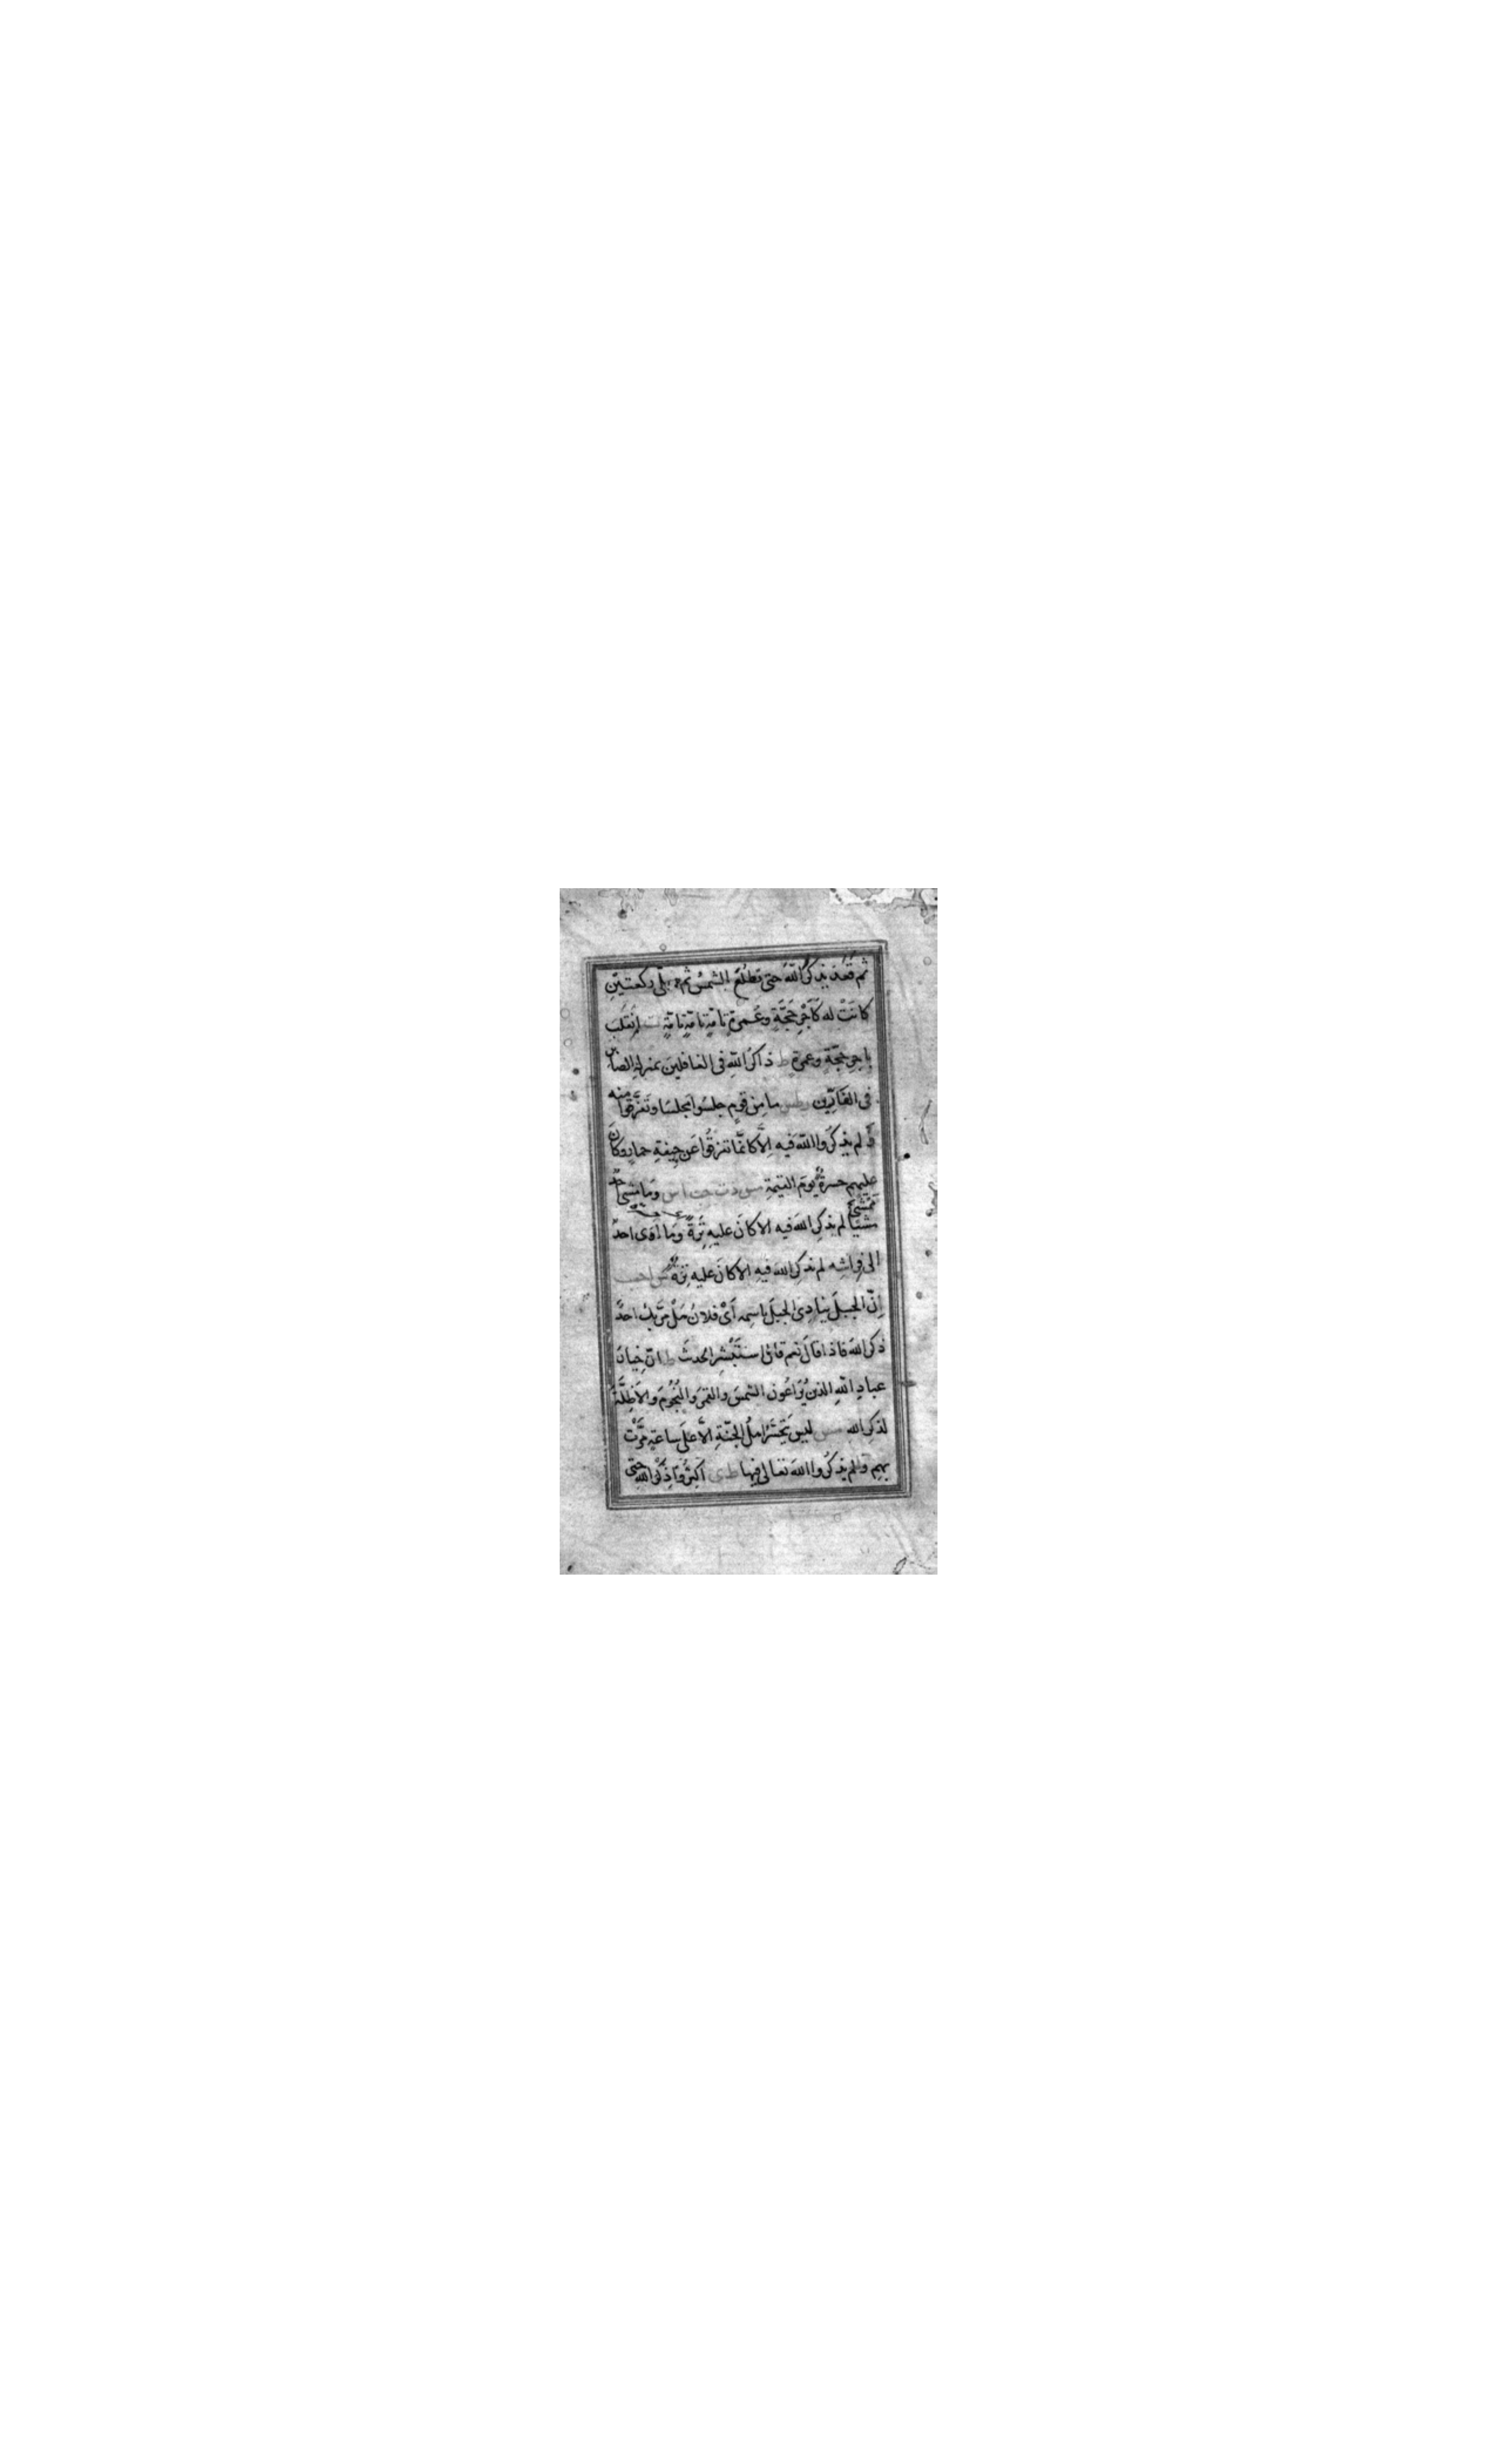 ثم قعد يذكر الله حتى تطلع الشمس ثم صلى ركعتين
كانت له كأجر حجة وعمرة تامة تامة تامة ت انقلب
باجر حجة وعمرة ط ذاكر الله فى الغافلين بمنزلة الصابر
فى الفارين رطس ما من قوم جلسوا مجلسا وتفرقوا منه
ولم يذكروا الله فيه الا كانما تفرقوا عن جيفة حمار وكان
عليهم حسرة يوم القيمة مس د ت حب ا س وما مشى احد
ممشى مشيا لم يذكر الله فيه الا كان عليه ترة وما اوى احد
الى فراشه لم يذكر الله فيه الا كان عليه ترة س ا حب
ان الجبل ينادى الجبل باسمه أى فلان هل مر بك احد
ذكر الله فاذا قال نعم استبشر الحدث ط ان خيار
عباد الله الذين يراعون الشمس والقمر والنجوم والاظلة
لذكر الله مس ليس يتحسر اهل الجنة الا على ساعة مرت
بهم ولم يذكروا الله تعالى فيها ط ى اكثروا ذكر الله حتى